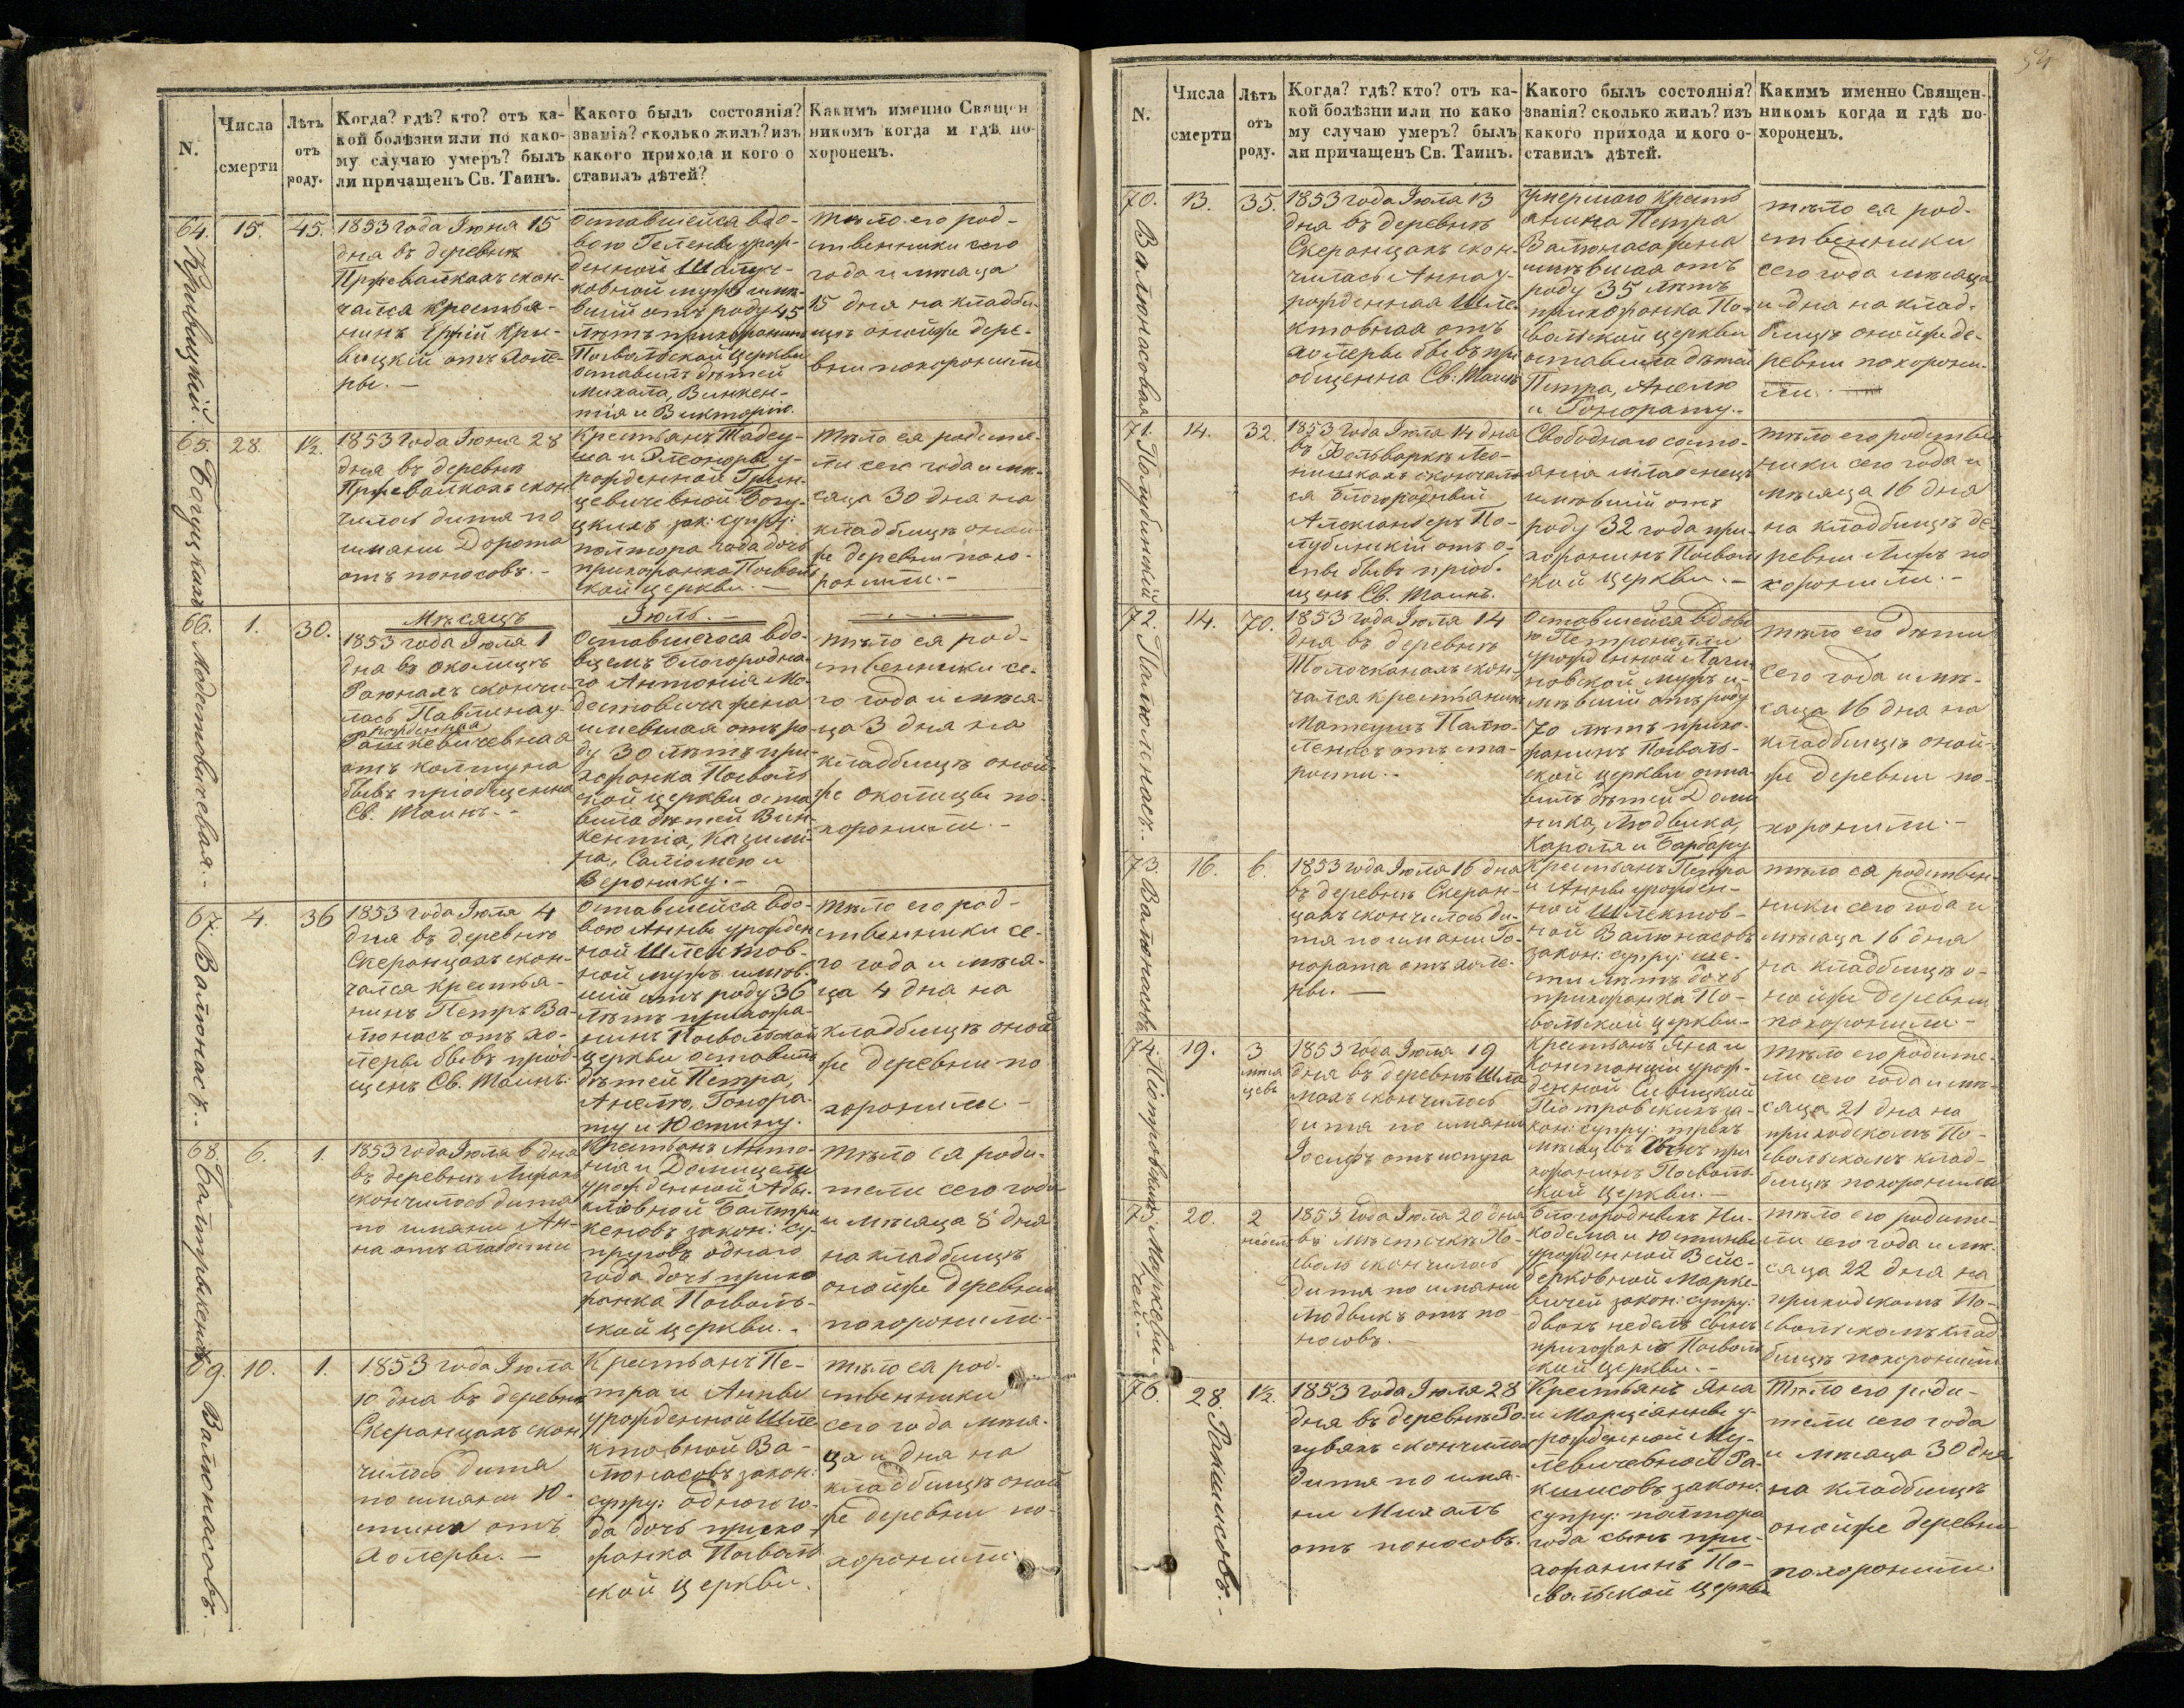 N.
Числа
смерти
Лѣтъ
отъ
роду.
Когда? гдѣ? кто? отъ ка-
кой болѣзни или по како-
му случаю умеръ? былъ
ли причащенъ Св. Таинъ.
Какого былъ состоянія?
званія? сколько жилъ? изъ
какого прихода и кого о
ставилъ дѣтей?
Какимъ именно Священ
никомъ когда и гдѣ по-
хороненъ.
64.
Кривицкій.
15.
45.
1853 года Іюня 15
дня въ деревнѣ
скон-
чался крестья-
нинъ Кри-
вицкій отъ холе-
ры. —
Оставшейся вдо-
вою Гелены урож-
денной
мужъ имѣ-
вшій отъ роду 45
лѣтъ прихожанинъ
Посвольской церкви
оставилъ дѣтей
Михала, Викен-
тія и Викторію.
тѣло его род-
ственники сего
года и мѣсяца
15 дня на кладби-
щѣ онойже дере-
вни похоронили
65.
Богуцкая
28.
1½.
1853 года Іюня 28
дня въ деревнѣ
скон
чилось дитя по
имяни Дорота
отъ поносовъ. —
Крестьянъ Тадеу-
ша и Элеоноры у-
рожденной Грин-
цевичевной Богу-
цкихъ зак: супру:
полтора года дочь
прихожанка Посволь
ской церкви. —
Тѣло ея родите-
ли сего года и мѣ-
сяца 30 дня на
кладбищѣ оной
же деревни похо-
ронили. —
Мѣсяцъ
Іюль. —
66.
Модестовичевая. -
1.
30.
1853 года Іюля 1
дня въ околицѣ
Раюнахъ скончи-
лась Павлина у-
рожденная
Рашкевичевная
отъ колтуна
бывъ пріобщенна
Св. Таинъ. -
Оставшегося вдо-
вцемъ благородна-
го Антонія Мо-
дестовича жена
имевшая отъ ро
ду 30 лѣтъ при-
хожанка Посволь
ской церкви оста
вила дѣтей Вин-
кентія, Казими-
ра, Саломею и
Веронику. —
тѣло ея род-
ственники се-
го года и мѣся-
ца 3 дня на
кладбищѣ оной
же околицы по-
хоронили. —
67.
Валюнасъ. -
4.
36
1853 года Іюля 4
дня въ деревнѣ
Скеранцахъ скон-
чался крестья-
нинъ Петръ Ва-
люнасъ отъ хо-
леры бывъ пріоб-
щенъ Св. Таинъ:
Оставшейся вдо-
вою Анны урожден
ной Шлектов-
ной мужъ имѣв-
шій отъ роду 36
лѣтъ прихожа-
нинъ Посвольской
церкви оставилъ
дѣтей Петра,
Анелю, Гонора-
ту и Юстину.
Тѣло его род-
ственники се-
го года и мѣся-
ца 4 дня на
кладбищѣ оной
же деревни по
хоронили. —
68.
Балтрыкеновъ
6.
1.
1853 года Іюля 6 дня
въ деревнѣ
скончилось дитя
по имяни Ан-
на отъ слабости
Крестьянъ Анто-
нія и Домицели
урожденной
Балтры
кеновъ закон: су-
пруговъ одного
года дочь прихо
жанка Посволь-
ской церкви. -
тѣло ея роди-
тели сего года
и мѣсяца 8 дня
на кладбищѣ
онойже деревни
похоронили. -
69.
Валюнасовъ. -
10.
1.
1853 года Іюля
10 дня въ деревнѣ
Скеранцахъ скон
чилось дитя
по имяни Ю-
стина отъ
холеры. —
Крестьянъ Пе-
тра и Анны
урожденной Шле
ктовной Ва-
люнасовъ закон:
супру: одного го-
да дочь прихо-
жанка Посволь
ской церкви.
тѣло ея род-
ственники
сего года мѣся-
ца и дня на
кладбищѣ оной
же деревни по-
хоронили.
54
N.
Числа
смерти
Лѣтъ
отъ
роду.
Когда? гдѣ? кто? отъ ка-
кой болѣзни или по како
му случаю умеръ? былъ
ли причащенъ Св. Таинъ.
Какого былъ состоянія?
званія? сколько жилъ? изъ
какого прихода и кого о-
ставилъ дѣтей.
Какимъ именно Священ-
никомъ когда и гдѣ по-
хороненъ.
70.
Валюнасовая.
13.
35.
1853 года Іюля 13
дня въ деревнѣ
Скеранцахъ скон-
чилась Анна у-
рожденная Шле-
ктовная отъ
холеры бывъ прі
общенна Св: Таинъ
Умершаго кресть
янина Петра
Валюнаса жена
имѣвшая отъ
роду 35 лѣтъ
прихожанка По-
свольской церкви
оставила дѣтей
Петра, Анелю
и Гонорату. -
тѣло ея род-
ственники
сего года мѣсяца
и дня на клад-
бищѣ онойже де-
ревни похорони-
ли.
71.
Полубинскій
14.
32.
1853 года Іюля 14 дня
въ Фольваркѣ Лео-
нишкахъ скончал
ся благородный
Александеръ По-
лубинскій отъ о-
спы бывъ пріоб-
щенъ Св. Таинъ.
Свободнаго состо-
янія младенецъ
имѣвшій отъ
роду 32 года при-
хожанинъ Посволь
ской церкви. —
тѣло его родствен
ники сего года и
мѣсяца 16 дня
на кладбищѣ де
ревни по
хоронили. —
72.
Палюленасъ. -
14.
70.
1853 года Іюля 14
дня въ деревнѣ
Толочканахъ скон-
чался крестьянинъ
Матеушъ Палю-
ленасъ отъ ста-
рости. -
Оставшейся вдово
ю Петронели
урожденной
новской мужъ и-
мѣвшій отъ роду
70 лѣтъ прихо-
жанинъ Посволь-
ской церкви оста-
вилъ дѣтей Доми
ника, Людвика,
Кароля и Барбару
тѣло его дѣти
сего года и мѣ-
сяца 16 дня на
кладбищѣ оной-
же деревни по-
хоронили. —
73.
Валюнасовъ
16.
6.
1853 года Іюля 16 дня
въ деревнѣ Скеран-
цахъ скончилось ди-
тя по имяни Го-
нората отъ холе-
ры. —
Крестьянъ Петра
и Анны урожден-
ной Шлектов-
ной Валюнасовъ
закон: супру: ше-
сти лѣтъ дочь
прихожанка По-
свольской церкви. -
тѣло ея родствен-
ники сего года и
мѣсяца 16 дня
на кладбищѣ о-
нойже деревни
похоронили. -
74.
Піотровскихъ
19.
3
мѣся
цевъ
1853 года Іюля 19
дня въ деревнѣ Шла
махъ скончилось
дитя по имяни
Іосифъ отъ испуга
Крестьянъ Яна и
Констанціи урож-
денной Сивицкой
Піотровскихъ за-
кон: супру: трехъ
мѣсяцевъ сынъ при
хожанинъ Посволь-
ской церкви. —
тѣло его родите-
ли сего года и мѣ-
сяца 21 дня на
приходскомъ По-
свольскомъ клад-
бищѣ похоронили
75.
Маркеви-
чей. -
20.
2
недели
1853 года Іюля 20 дня
въ мѣстечкѣ По-
сволѣ скончилось
дитя по имяни
Людвикъ отъ по-
носовъ. —
Благородныхъ Ни-
кодема и Юстины
урожденной Вейс-
берковной Марке-
вичей закон: супру:
двохъ недель сынъ
прихожан Посволь
ской церкви. —
тѣло его родите-
ли сего года и мѣ-
сяца 22 дня на
приходскомъ По-
свольскомъ клад
бищѣ похоронили
76.
Ракишсовъ. -
28.
1½.
1853 года Іюля 28
дня въ деревнѣ
скончилось
дитя по имя-
ни Михалъ
отъ поносовъ.
Крестьянъ Яна
и Марціянны у-
рожденной Му-
левичевной Ра-
кишсовъ закон:
супру: полтора
года сынъ при-
хожанинъ По-
свольской церкви
Тѣло его роди-
тели сего года
и мѣсяца 30 дня
на кладбищѣ
онойже деревни
похоронили